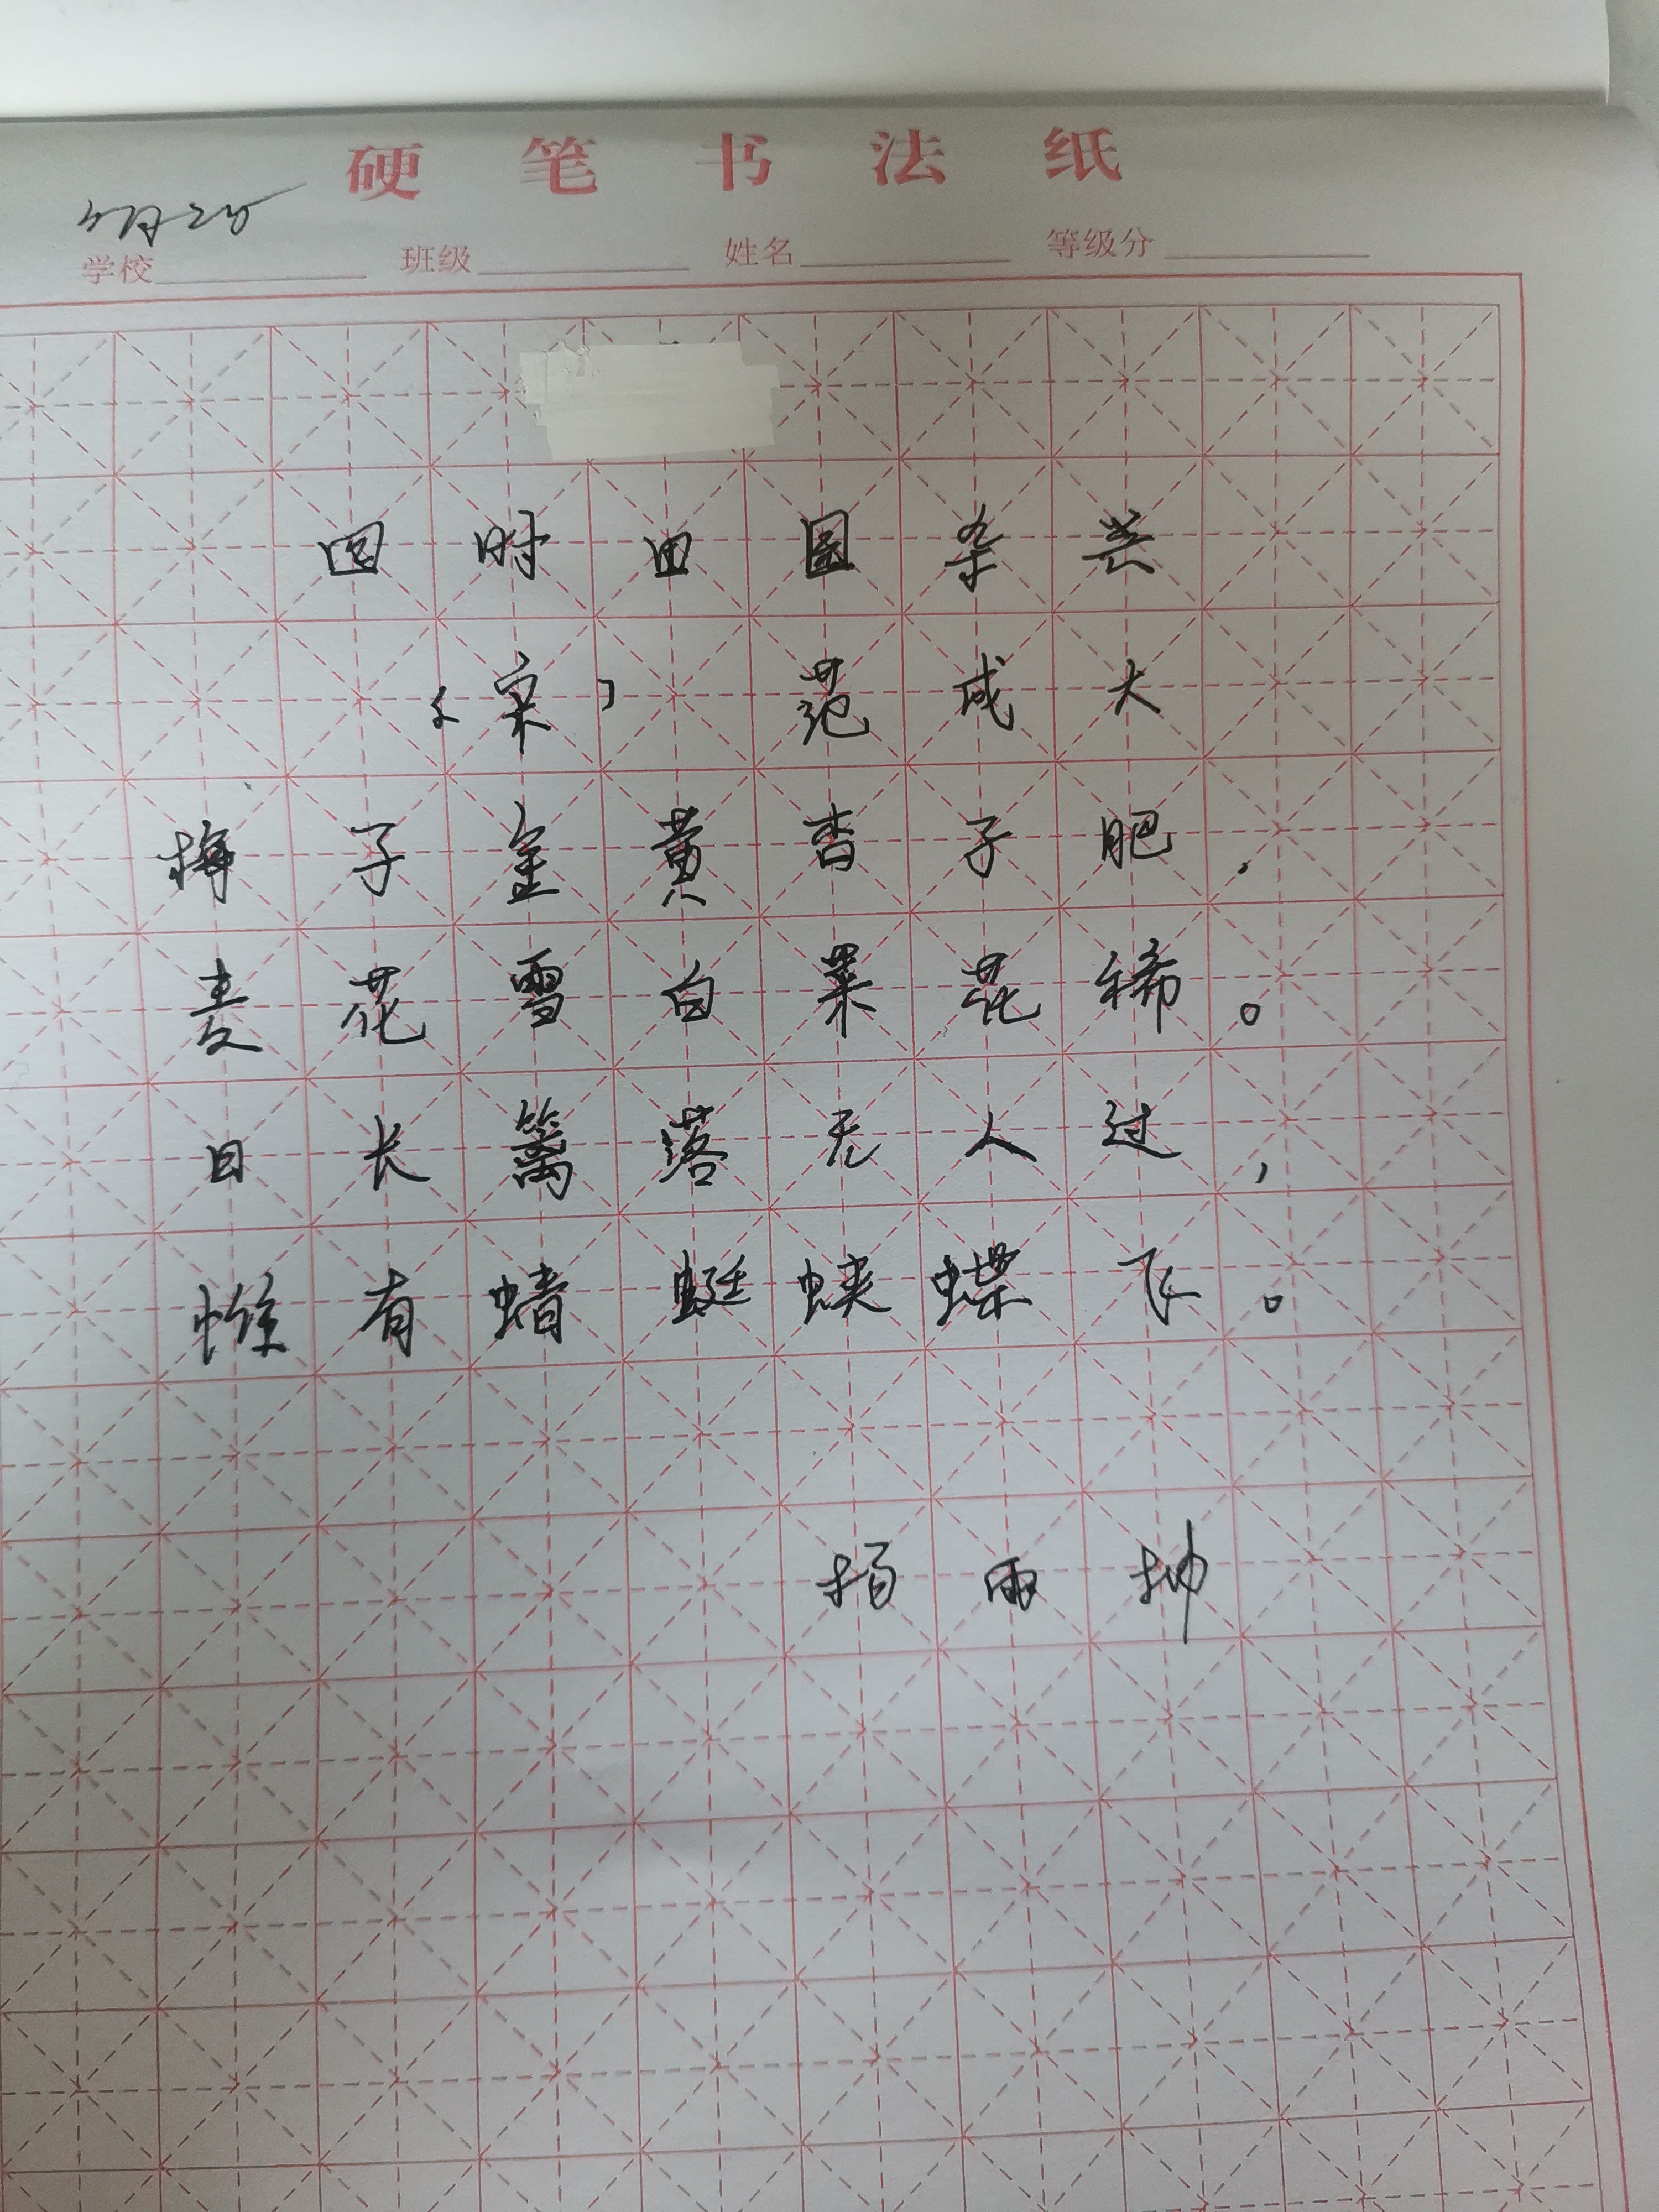 硬笔书法纸
学校 班级 姓名 等级分
四时田园杂兴
[宋] 范成大
梅子金黄杏子肥,
麦花雪白菜花稀。
日长篱落无人过,
惟有蜻蜓蛱蝶飞。